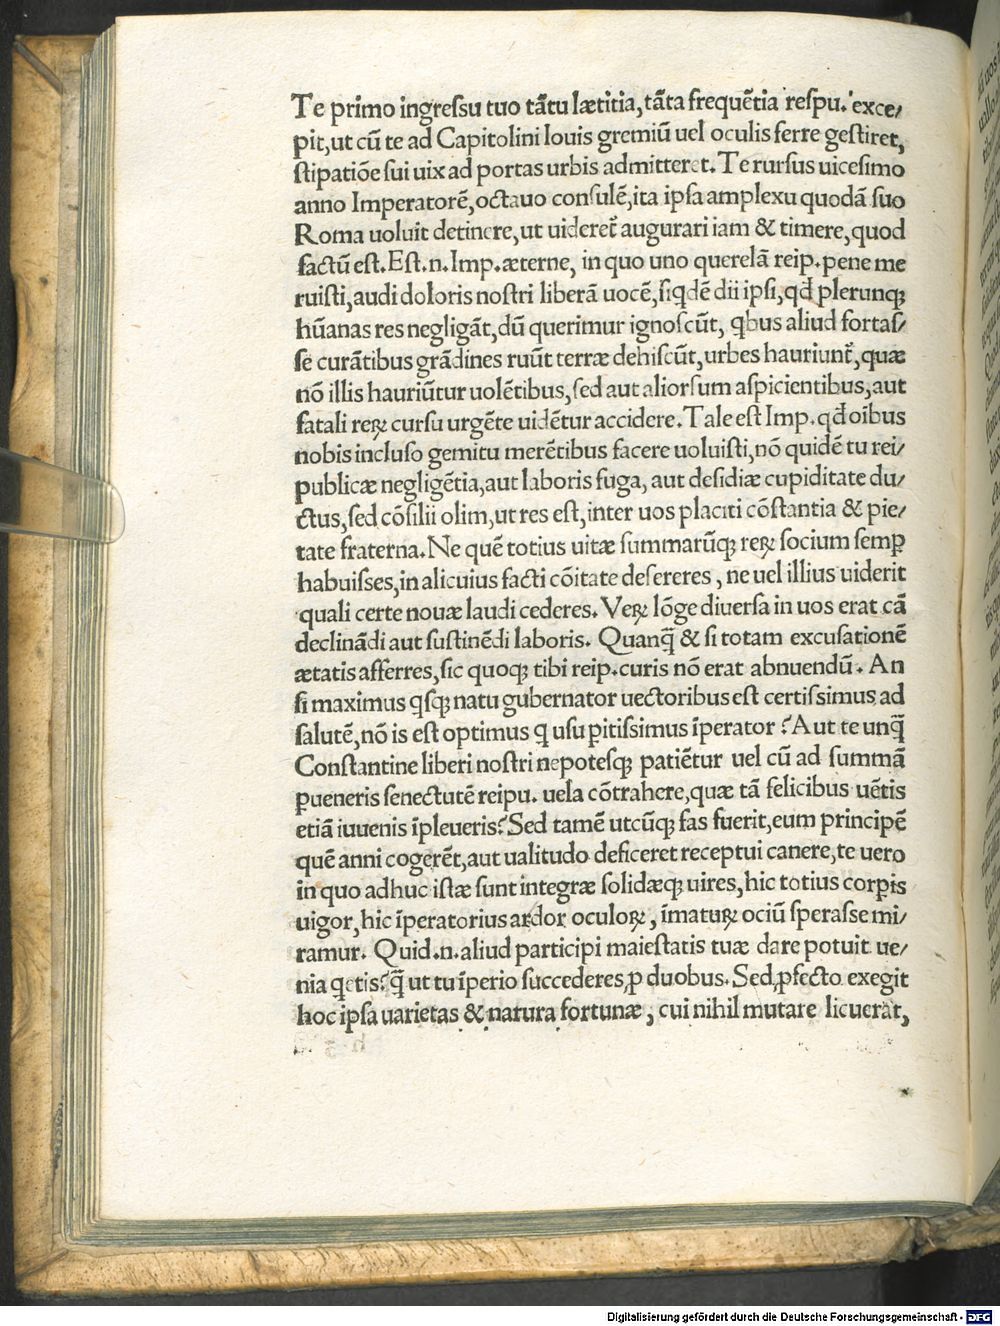 Te primo ingreſsu tuo tãtu lætitia, tãta frequẽtia reſpu. exce/
pit, ut cũ te ad Capitolini Iouis gremiũ uel oculis ferre geſtiret,
ſtipatiõe ſui uix ad portas urbis admitteret. Te rurſus uiceſimo
anno Imperatorẽ, octauo conſulẽ, ita ipſa amplexu quodã ſuo
Roma uoluit detinere, ut uideret̃ augurari iam & timere, quod
factũ eſt. Eſt .n. Imp. æterne, in quo uno querelã reip. pene me
ruiſti, audi doloris noſtri liberã uocẽ, ſiqdẽ dii ipſi, qđ plerunqꝫ
hũanas res negligãt, dũ querimur ignoſcũt, qbus aliud fortaſ/
ſe curãtibus grãdines ruũt terræ dehiſcũt, urbes hauriunt̃, quæ
nõ illis hauriũtur uolẽtibus, ſed aut aliorſum aſpicientibus, aut
fatali reꝝ curſu urgẽte uidẽtur accidere. Tale eſt Imp. qđ oĩbus
nobis incluſo gemitu merẽtibus facere uoluiſti, nõ quidẽ tu rei/
publicæ negligẽtia, aut laboris fuga, aut deſidiæ cupiditate du/
ctus, ſed cõſilii olim, ut res eſt, inter uos placiti cõſtantia & pie/
tate fraterna. Ne quẽ totius uitæ ſummarũqꝫ reꝝ ſocium ſemꝑ
habuiſses, in alicuius facti cõitate deſereres, ne uel illius uiderit
quali certe nouæ laudi cederes. Veꝝ lõge diuerſa in uos erat cã
declinãdi aut ſuſtinẽdi laboris. Quanq̃ & ſi totam excuſationẽ
ætatis afferres, ſic quoqꝫ tibi reip. curis nõ erat abnuendũ. An
ſi maximus qſqꝫ natu gubernator uectoribus eſt certiſsimus ad
ſalutẽ, nõ is eſt optimus q uſu ꝑitiſsimus ĩperator? Aut te unq̃
Conſtantine liberi noſtri nepoteſqꝫ patiẽtur uel cũ ad ſummã
ꝑueneris ſenectutẽ reipu. uela cõtrahere, quæ tã felicibus uẽtis
etiã iuuenis ĩpleueris? Sed tamẽ utcũqꝫ fas fuerit, eum principẽ
quẽ anni cogerẽt, aut ualitudo deficeret receptui canere, te uero
in quo adhuc iſtæ ſunt integræ ſolidæqꝫ uires, hic totius corꝑis
uigor, hic ĩperatorius ardor oculoꝝ, ĩmatuꝝ ociũ ſperaſse mi/
ramur. Quid .n. aliud participi maieſtatis tuæ dare potuit ue/
nia qetis? q̃ ut tu ĩperio ſuccederes, ꝓ duobus. Sed ꝓfecto exegit
hoc ipſa uarietas & natura fortunæ, cui nihil mutare licuerat,
Digitalisierung gefördert durch die Deutsche Forschungsgemeinschaft - DFG